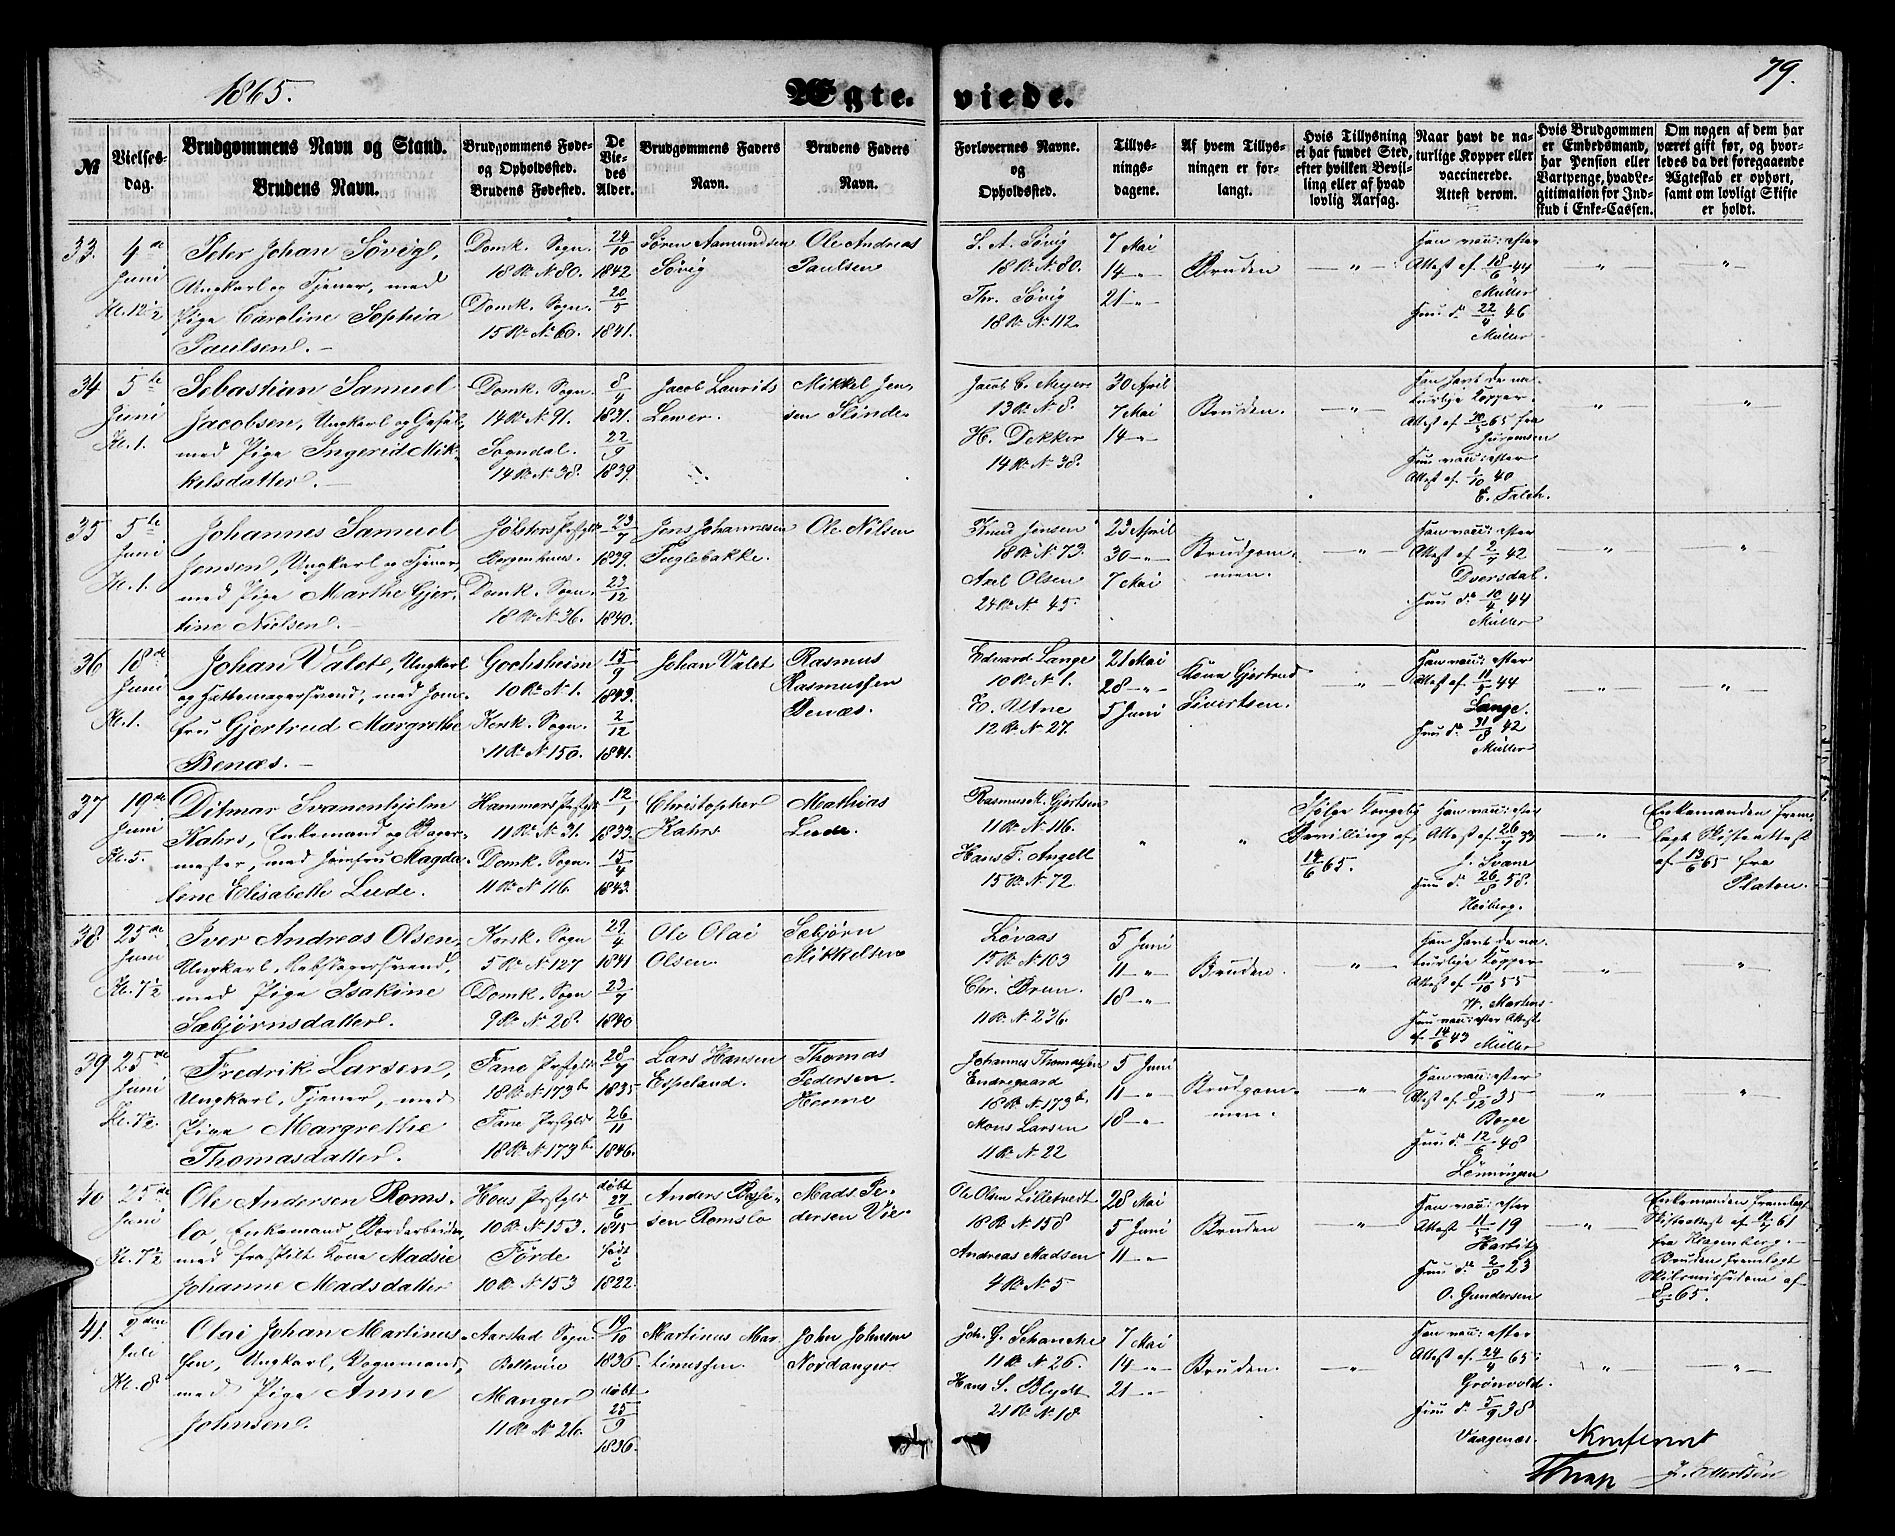 1865.
Ægte-
viede.
79.
№
Vielses-
dag.
Brudgommens Navn og Stand.
Brudens Navn.
Brudgommens Føde-
og Opholdssted.
Brudens Fødested.
De
Vie-
des
Alder.
Brudgommens Faders
Navn.
Brudens Faders
Navn.
Forlovernes Navne.
og
Opholdssted.
Tillys-
nings-
dagene.
Af hvem Tillys-
ningen er for-
langt.
Hvis Tillysning
ei har fundet Sted,
efter hvilken Bevil-
ling eller af hvad
lovlig Aarsag.
Naar havt de na-
turlige Kopper eller
vaccinerede.
Attest derom.
Hvis Brudgommen
er Embedsmand,
har Pension eller
Vartpenge, hvad Le-
gitimation for Ind-
skud i Enke-Cassen.
Om nogen af dem har
været gift før, og hvor-
ledes da det foregaaende
Ægteskab er ophørt,
samt om lovligt Skifte
er holdt.
33.
4de
Juni
Kl. 12½
Peter Johan Søvig,
Ungkarl og Tjener, med
Pige Caroline Sophia
Paulsen. –
Domk. Sogn.
18 R. N 80.
Domk. Sogn.
15 R. N 60.
24/10
1842
20/5
1841.
Søren Aamundsen
Søvig
Ole Andreas
Paulsen
S. A. Søvig
18 R. N 80.
Thr. Søvig
18 R. N 112.
7 Mai
14 – „
21 – „
Bruden
„
Han vacc: efter
Attest af 18/6 44
Müller
Hun d. 22/4 46
Müller
„
„
34
5te
Juni
Kl. 1.
Sebastian Samuel
Jacobsen, Ungkarl og
med Pige Ingerid Mik-
kelsdatter. –
Domk. Sogn.
14 R. N 91.
Sogndal.
14 R. N 38.
8/4
1831.
22/9
1839.
Jacob Laurits
Lewer.
Mikkel Jen-
sen Slinde
Jacob C. Meyer
13 R. N 8.
H. Dekker
14 R. N 38.
30 April
7 Mai
14 – „
Bruden.
„
Han havt de na-
turlige Kopper.
Attest af 65 fra
Hun vacc: efter
Attest af 1/10 40
E. Falch.
„
„
35
5te
Juni
Kl. 1.
Johannes Samuel
Jensen, Ungkarl og Tjener,
med Pige Marthe Gjer-
tine Nielsen. –
Jølsters Prstgjld
Bergenhuus.
Domk. Sogn.
18 R. N 36.
23/7
1839.
23/12
1840.
Jens Johannesen
Fuglebakke.
Ole Nilsen
Knud Jensen
18 R. N 73.
Axel Olsen
24 R. N 45.
23 April
30 – „
7 Mai
Brudgom-
men.
„
Han vacc: efter
Attest af 2/7 42
Dversdal.
Hun d. 10/4 44
Müller
„
„
36
18de
Juni
Kl. 1.
Johan Valet, Ungkarl
og Hattemagersvend, med Jom-
fru Gjertrud Margrethe
Benæs. –
Gochsheim
10 R. N 1.
Korsk. Sogn.
11 R. N 150.
15/9
1843.
2/12
1841.
Johan Valet
Rasmus
Rasmussen
Benæs.
Edvard Lange
10 R. N 1.
E. Utne
12 R. N 27.
21 Mai
28 – „
5 Juni
Kone Gjertrud
Sivertsen.
„
Han vacc: efter
Attest af 44
Lange.
Hun d. 31/8 42
Müller
„
„
37
19de
Juni
Kl. 5.
Ditmar Svanenhjelm
Kahrs, Enkemand og Bager-
mester, med Jomfru Magda-
lene Elisabeth Lude.
Hammers Prstgjld
11 R. N 31.
Domk. Sogn.
11 R. N 116.
12/1
1833.
15/4
1843.
Christopher
Kahrs
Mathias
Lude.
Rasmus K. Gjertsen
11 R. N 116.
Hans F. Angell
15 R. N 72
„
„
Ifølge Kongelig
Bevilling af
14/6 65.
Han vacc: efter
Attest af 26/7 33
J. Svane
Hun d. 26/8 58.
Heiberg.
„
Enkemanden frem-
lagt Skifteattest
af 13/6 65 fra
Platou.
38.
25de
Juni
Kl. 7½
Iver Andreas Olsen,
Ungkarl, Rebslagersvend,
med Pige Isakine
Sæbjørnsdatter.
Korsk. Sogn
5 R. N 127
Domk. Sogn
9 R. N 28.
29/4
1841
23/7
1840
Ole Olai
Olsen.
Sæbjørn
Mikkelsen
Løvaas
15 R. N 103
Chr. Brun.
11 R. N 236.
5 Juni
11 – „
18 – „
Bruden.
„
Han havt de na-
turlige Kopper
Attest af 11/10 55
W. Martens
Hun vacc: efter Attest
af 14/6 43 Müller
„
„
39
25de
Juni
Kl. 7½.
Fredrik Larsen,
Ungkarl, Tjener, med
Pige Margrethe
Thomasdatter.
Fane Prstgjld
18 R. N 173 b
Fane Prstgjld
18 R. N 173 b.
28/7
1835
26/11
1846.
Lars Hansen
Espeland.
Thomas
Pedersen
Johannes Thomassen
Endregaard
18 R. N 173 b.
Mons Larsen
11 R. N 22
5 Juni
11 – „
18 – „
Brudgom-
men.
„
Han vacc: efter
Attest af 8/12 35
Hun d. 12/6 48
„
„
40
25de
Juni
Kl. 7½
Ole Andersen Roms-
lo, Enkemand, Bordarbeider,
med fraskilt Kone Madsie
Johanne Madsdatter
Hous Prstgjld
10 R. N 153.
Førde
10 R. N 153
døbt
27/6
1815
født
1822.
Anders
sen Romslo
Mads Pe-
dersen Vie
Ole Olsen Lilletvedt
18 R. N 158
Andreas Madsen
4 R. N 5
28 Mai
5 Juni
11 – „
Bruden
„
Han vacc: efter
Attest 11/5 19
Harbitz
Hun d. 2/8 23
O. Gundersen
„
Enkemanden fremlagt
Skifteattest af 61
fra Klagenberg. –
Bruden fremlagt
Skilsmissedom af
8/5 65.
41.
2den
Juli
Kl. 8
Olai Johan Martinus-
sen, Ungkarl, Vognmand,
med Pige Anne
Johnsen.
Aarstad Sogn.
Bellevue
Manger
11 R. N 26.
19/10
1836.
døbt
25/9
1836.
Martinus Mar-
tinussen.
John Johnsen
Nordanger
Joh. G. Schancke
11 R. N 26.
Hans S. Blydt
21 R. N 18
7 Mai
14 – „
21 – „
Bruden.
„
Han vacc: efter
Attest af 24/4 65.
Grønvold.
Hun d. 5/9 38
Vaagenæs.
„
„
Konfereret